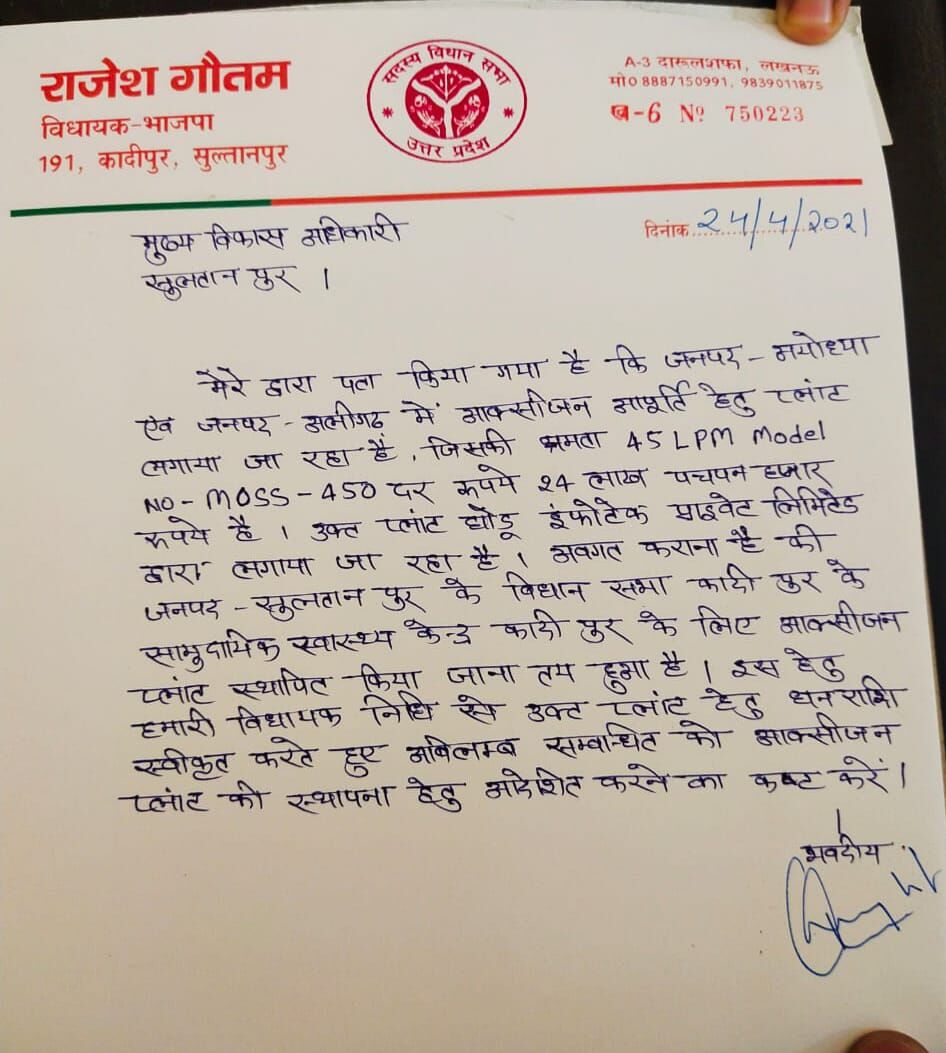 राजेश गौतम
विधायक-भाजपा
191, कादीपुर, सुल्तानपुर
सदस्य विधान सभा
उत्तर प्रदेश
A-3 दारूलशफा, लखनऊ
मो0 8887150991, 9839011875
ब-6 Nº 750223
दिनांक 24/4/2021
मुख्य विकास अधिकारी
सुलतान पुर ।
मेरे द्वारा पता किया गया है कि जनपद - अयोध्या
एवं जनपद - अलीगढ़ में आक्सीजन आपूर्ति हेतु प्लांट
लगाया जा रहा है, जिसकी क्षमता 45 LPM Model
NO - MOSS - 450 दर रूपये 24 लाख पचपन हजार
रूपये है । उक्त प्लांट इंफोटेक प्राइवेट लिमिटेड
द्वारा लगाया जा रहा है । अवगत कराना है की
जनपद - सुलतान पुर के विधान सभा कादी पुर के
सामुदायिक स्वास्थ्य केन्द्र कादी पुर के लिए आक्सीजन
प्लांट स्थापित किया जाना तय हुआ है । इस हेतु
हमारी विधायक निधि से उक्त प्लांट हेतु धनराशि
स्वीकृत करते हुए अविलम्ब सम्बन्धित को आक्सीजन
प्लांट की स्थापना हेतु आदेशित करने का कष्ट करें ।
भवदीय